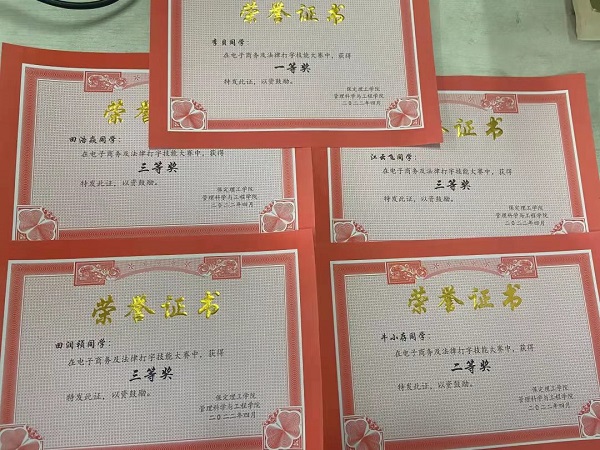 荣誉证书
李贝同学：
在电子商务及法律打字技能大赛中，获得
一等奖
特发此证，以资鼓励。
保定理工学院
管理科学与工程学院
二〇二二年四月
荣誉证书
田浩焱同学：
在电子商务及法律打字技能大赛中，获得
三等奖
特发此证，以资鼓励。
保定理工学院
管理科学与工程学院
二〇二二年四月
证书
江云飞同学：
在电子商务及法律打字技能大赛中，获得
三等奖
特发此证，以资鼓励。
保定理工学院
管理科学与工程学院
二〇二二年四月
荣誉证书
田润祯同学：
在电子商务及法律打字技能大赛中，获得
三等奖
特发此证，以资鼓励。
保定理工学院
管理科学与工程学院
二〇二二年四月
荣誉证书
牛小森同学：
在电子商务及法律打字技能大赛中，获得
二等奖
特发此证，以资鼓励。
保定理工学院
管理科学与工程学院
二〇二二年四月